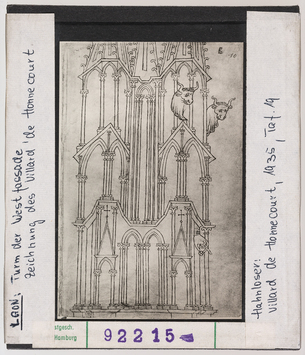 LAON: Turm der Westfassade
Zeichnung des Villard de Honnecourt.
Hahnloser:
Villard de Honnecourt, 1935, Taf 19
stgesch.
Hamburg
92215